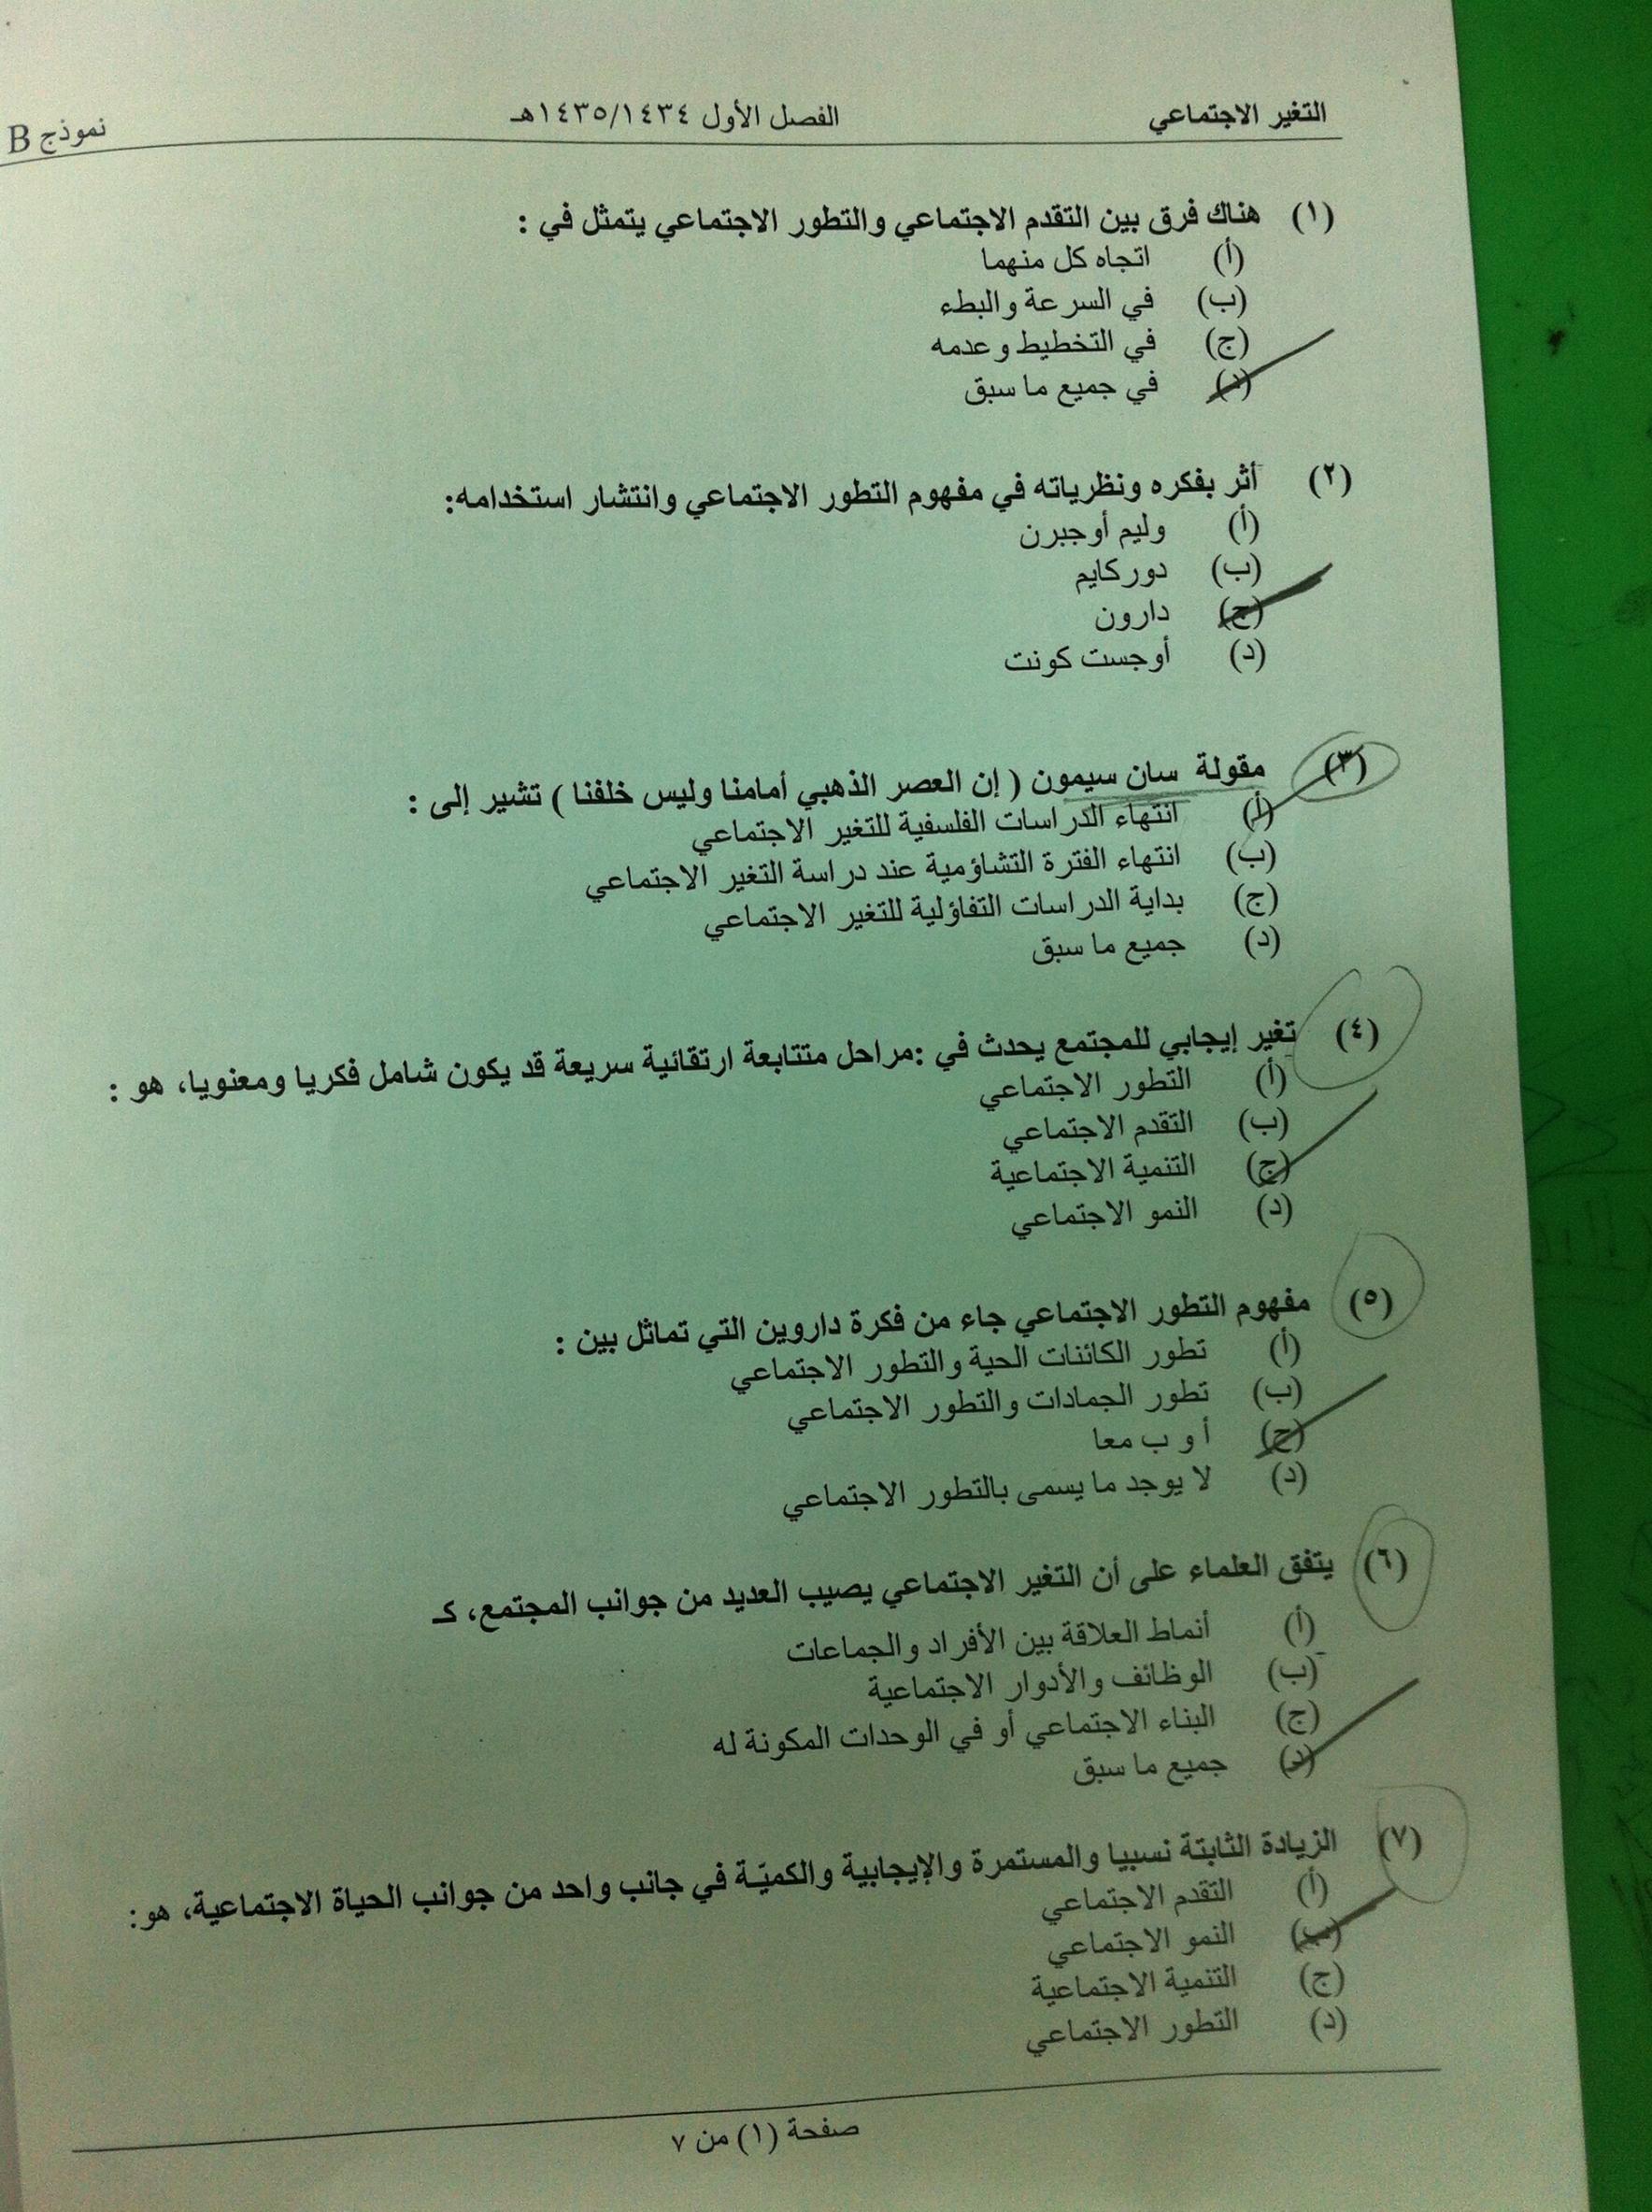 التغير الاجتماعي الفصل الأول ١٤٣٤/١٤٣٥هـ نموذج B
(١) هناك فرق بين التقدم الاجتماعي والتطور الاجتماعي يتمثل في :
(أ) اتجاه كل منهما
(ب) في السرعة والبطء
(ج) في التخطيط وعدمه
(د) في جميع ما سبق
(٢) أثر بفكره ونظرياته في مفهوم التطور الاجتماعي وانتشار استخدامه:
(أ) وليم أوجبرن
(ب) دوركايم
(ج) دارون
(د) أوجست كونت
(٣) مقولة سان سيمون ( إن العصر الذهبي أمامنا وليس خلفنا ) تشير إلى :
(أ) انتهاء الدراسات الفلسفية للتغير الاجتماعي
(ب) انتهاء الفترة التشاؤمية عند دراسة التغير الاجتماعي
(ج) بداية الدراسات التفاؤلية للتغير الاجتماعي
(د) جميع ما سبق
(٤) تغير إيجابي للمجتمع يحدث في :مراحل متتابعة ارتقائية سريعة قد يكون شامل فكريا ومعنويا، هو :
(أ) التطور الاجتماعي
(ب) التقدم الاجتماعي
(ج) التنمية الاجتماعية
(د) النمو الاجتماعي
(٥) مفهوم التطور الاجتماعي جاء من فكرة داروين التي تماثل بين :
(أ) تطور الكائنات الحية والتطور الاجتماعي
(ب) تطور الجمادات والتطور الاجتماعي
(ج) أ و ب معا
(د) لا يوجد ما يسمى بالتطور الاجتماعي
(٦) يتفق العلماء على أن التغير الاجتماعي يصيب العديد من جوانب المجتمع، كـ
(أ) أنماط العلاقة بين الأفراد والجماعات
(ب) الوظائف والأدوار الاجتماعية
(ج) البناء الاجتماعي أو في الوحدات المكونة له
(د) جميع ما سبق
(٧) الزيادة الثابتة نسبيا والمستمرة والإيجابية والكميّة في جانب واحد من جوانب الحياة الاجتماعية، هو:
(أ) التقدم الاجتماعي
(ب) النمو الاجتماعي
(ج) التنمية الاجتماعية
(د) التطور الاجتماعي
صفحة (١) من ٧